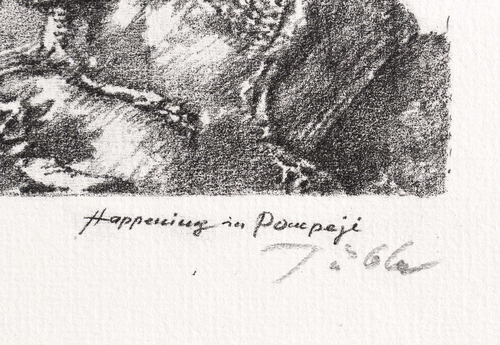 Happening in Pompeji
Tübke